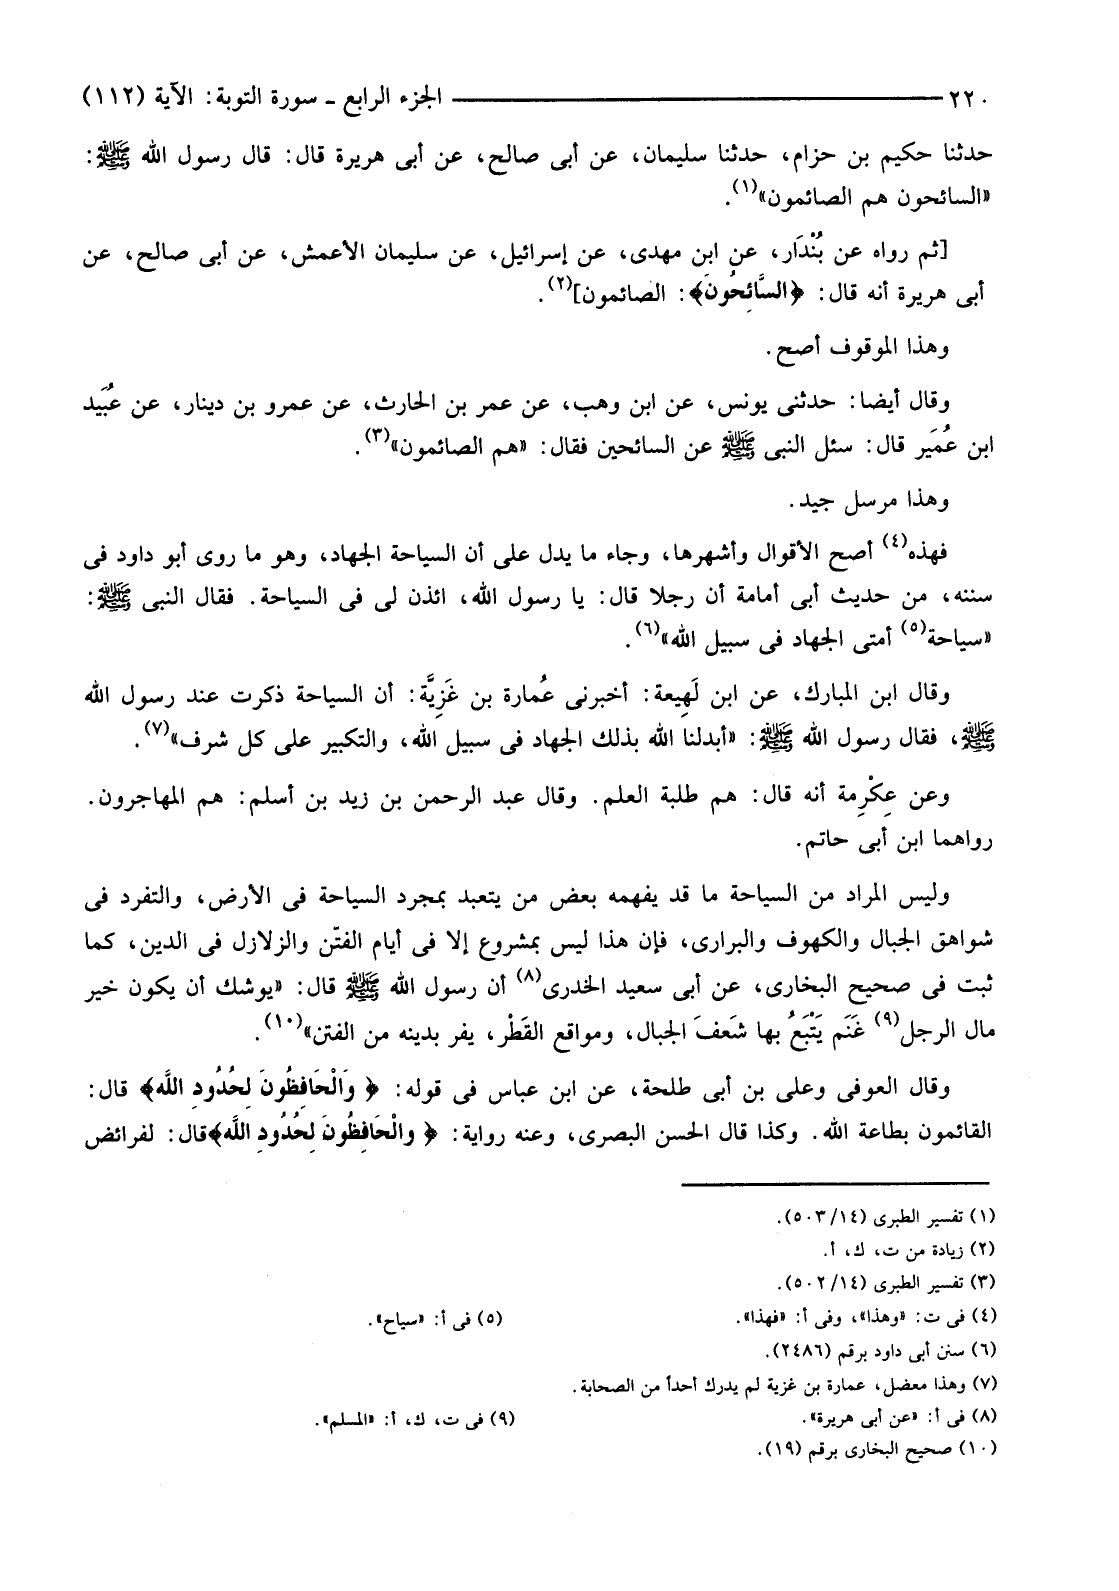 ٢٢٠ الجزء الرابع ـ سورة التوبة: الآية (١١٢)
حدثنا حكيم بن حزام، حدثنا سليمان، عن أبى صالح، عن أبى هريرة قال: قال رسول الله ﷺ:
«السائحون هم الصائمون»(١).
[ثم رواه عن بُنْدَار، عن ابن مهدى، عن إسرائيل، عن سليمان الأعمش، عن أبى صالح، عن
أبى هريرة أنه قال: ﴿السَّائِحُونَ﴾: الصائمون](٢).
وهذا الموقوف أصح.
وقال أيضا: حدثنى يونس، عن ابن وهب، عن عمر بن الحارث، عن عمرو بن دينار، عن عُبَيد
ابن عُمَير قال: سئل النبى ﷺ عن السائحين فقال: «هم الصائمون»(٣).
وهذا مرسل جيد.
فهذه(٤) أصح الأقوال وأشهرها، وجاء ما يدل على أن السياحة الجهاد، وهو ما روى أبو داود فى
سننه، من حديث أبى أمامة أن رجلا قال: يا رسول الله، ائذن لى فى السياحة. فقال النبى ﷺ:
«سياحة(٥) أمتى الجهاد فى سبيل الله»(٦).
وقال ابن المبارك، عن ابن لَهِيعة: أخبرنى عُمارة بن غَزِيَّة: أن السياحة ذكرت عند رسول الله
ﷺ، فقال رسول الله ﷺ: «أبدلنا الله بذلك الجهاد فى سبيل الله، والتكبير على كل شرف»(٧).
وعن عِكْرِمة أنه قال: هم طلبة العلم. وقال عبد الرحمن بن زيد بن أسلم: هم المهاجرون.
رواهما ابن أبى حاتم.
وليس المراد من السياحة ما قد يفهمه بعض من يتعبد بمجرد السياحة فى الأرض، والتفرد فى
شواهق الجبال والكهوف والبرارى، فإن هذا ليس بمشروع إلا فى أيام الفتَن والزلازل فى الدين، كما
ثبت فى صحيح البخارى، عن أبى سعيد الخدرى(٨) أن رسول الله ﷺ قال: «يوشك أن يكون خير
مال الرجل(٩) غَنَم يَتْبَعُ بها شَعَفَ الجبال، ومواقع القَطْر، يفر بدينه من الفتن»(١٠).
وقال العوفى وعلى بن أبى طلحة، عن ابن عباس فى قوله: ﴿ وَالْحَافِظُونَ لِحُدُودِ اللَّه﴾ قال:
القائمون بطاعة الله. وكذا قال الحسن البصرى، وعنه رواية: ﴿ والْحَافِظُونَ لِحُدُودِ اللَّه﴾قال: لفرائض
(١) تفسير الطبرى (٥٠٣/١٤).
(٢) زيادة من ت، ك، أ.
(٣) تفسير الطبرى (٥٠٢/١٤).
(٤) فى ت: «وهذا»، وفى أ: «فهذا». (٥) فى أ: «سياح».
(٦) سنن أبى داود برقم (٢٤٨٦).
(٧) وهذا معضل، عمارة بن غزية لم يدرك أحداً من الصحابة.
(٨) فى أ: «عن أبى هريرة». (٩) فى ت، ك، أ: «المسلم».
(١٠) صحيح البخارى برقم (١٩).